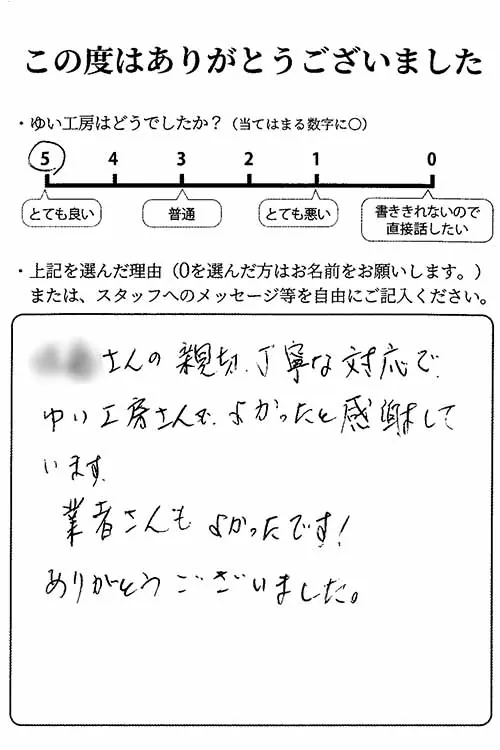 この度はありがとうございました
・ゆい工房はどうでしたか？（当てはまる数字に〇）
5 4 3 2 1 0
とても良い 普通 とても悪い 書ききれないので
直接話したい
・上記を選んだ理由（0を選んだ方はお名前をお願いします。）
または、スタッフへのメッセージ等を自由にご記入ください。
さんの親切、丁寧な対応で、
ゆい工房さんで、よかったと感謝して
います。
業者さんもよかったです！
ありがとうございました。